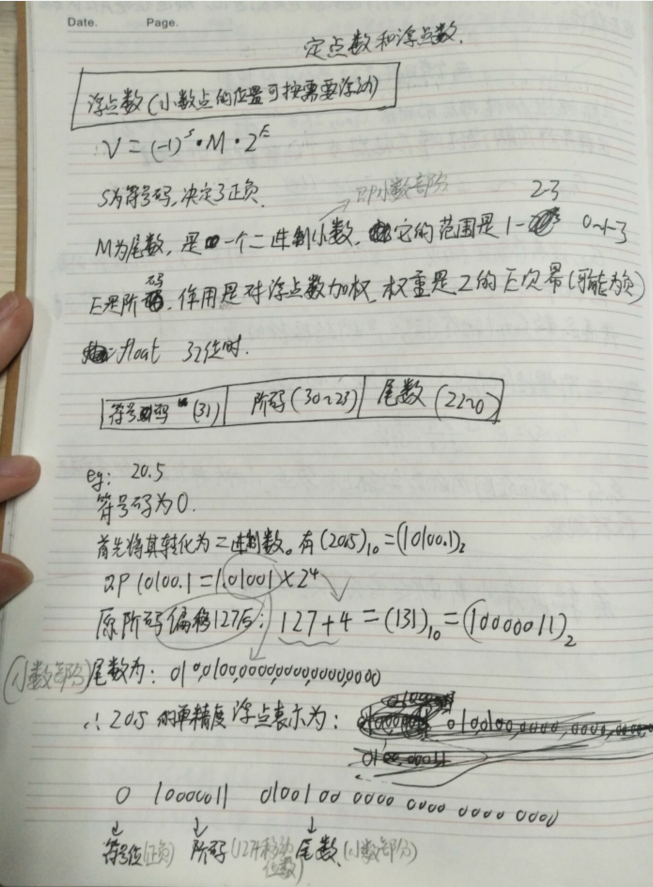 Date. Page.
定点数和浮点数.
浮点数(小数点的位置可按需要浮动)
V=(-1)^S·M·2^E
S为符号码,决定了正负.
即小数部分
M为尾数,是一个二进制小数,它的范围是1- 2-3 0~1-3
E是阶码,作用是对浮点数加权,权重是2的E次幂(可能为负)
float 32位时.
符号码(31) 阶码(30~23) 尾数(22~0)
eg: 20.5
符号码为0.
首先将其转化为二进制数。有(20.5)₁₀=(10100.1)₂
即10100.1=1.01001×2⁴
原阶码偏移127后: 127+4=(131)₁₀=(10000011)₂
(小数部分)尾数为:
∴20.5的单精度浮点表示为:
0 10000011 0100100 0000 0000 0000 0000
符号位(正负) 阶码(127+移动位数) 尾数(小数部分)